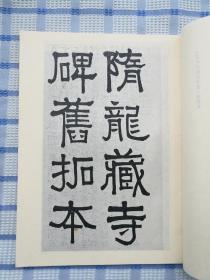 隋龍藏寺
碑舊拓本